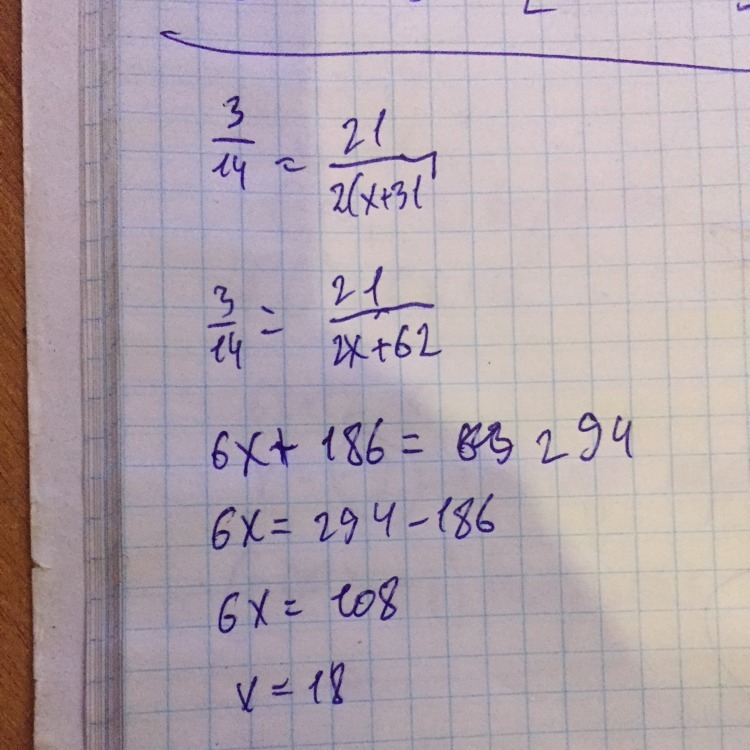 3/14 = 21/2(x+31
3/14 = 21/2x+62
6x+ 186 = 294
6x = 294 - 186
6x = 108
x = 18